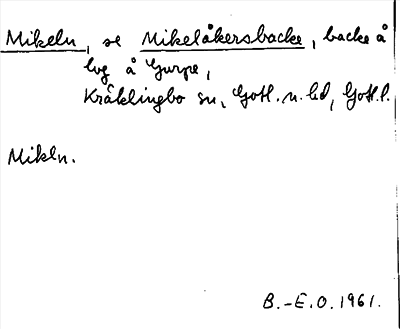 Mikeln, se Mikelåkersbacke, backe å
lvg å Gurpe,
Kräklingbo sn, Gotl. n. hd, Gotl. l.
Mikln.
B.-E.O. 1961.